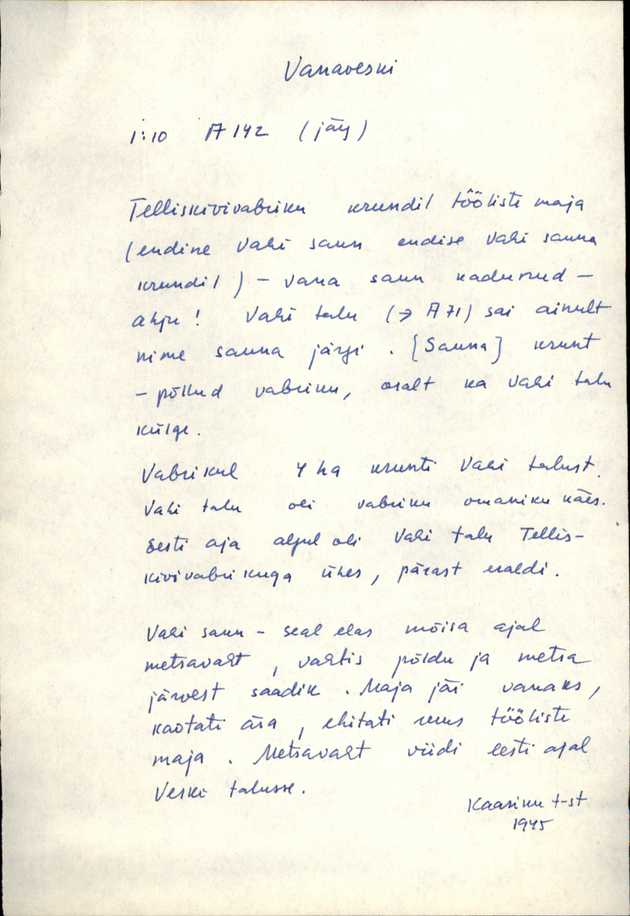 Vanaveski
1:10 A 142 (järg)
Telliskivivabriku krundil tööliste maja
(endine Vahi saun endise Vahi sauna
krundil) – vana saun kadunud –
ahju! Vahi talu (→ A 71) sai ainult
nime sauna järgi. [Sauna] krunt
– põllud vabriku, osalt ka Vahi talu
külge.
Vabrikul 4 ha krunti Vahi talust.
Vahi talu oli vabriku omaniku käes.
Eesti aja algul oli Vahi talu Tellis-
kivivabrikuga ühes, pärast eraldi.
Vahi saun – seal elas mõisa ajal
metsavaht, vahtis põldu ja metsa
järvest saadik. Maja jäi vanaks,
kaotati ära, ehitati uus tööliste
maja. Metsavaht viidi eesti ajal
Veski talusse.
Kaasiku t-st
1945